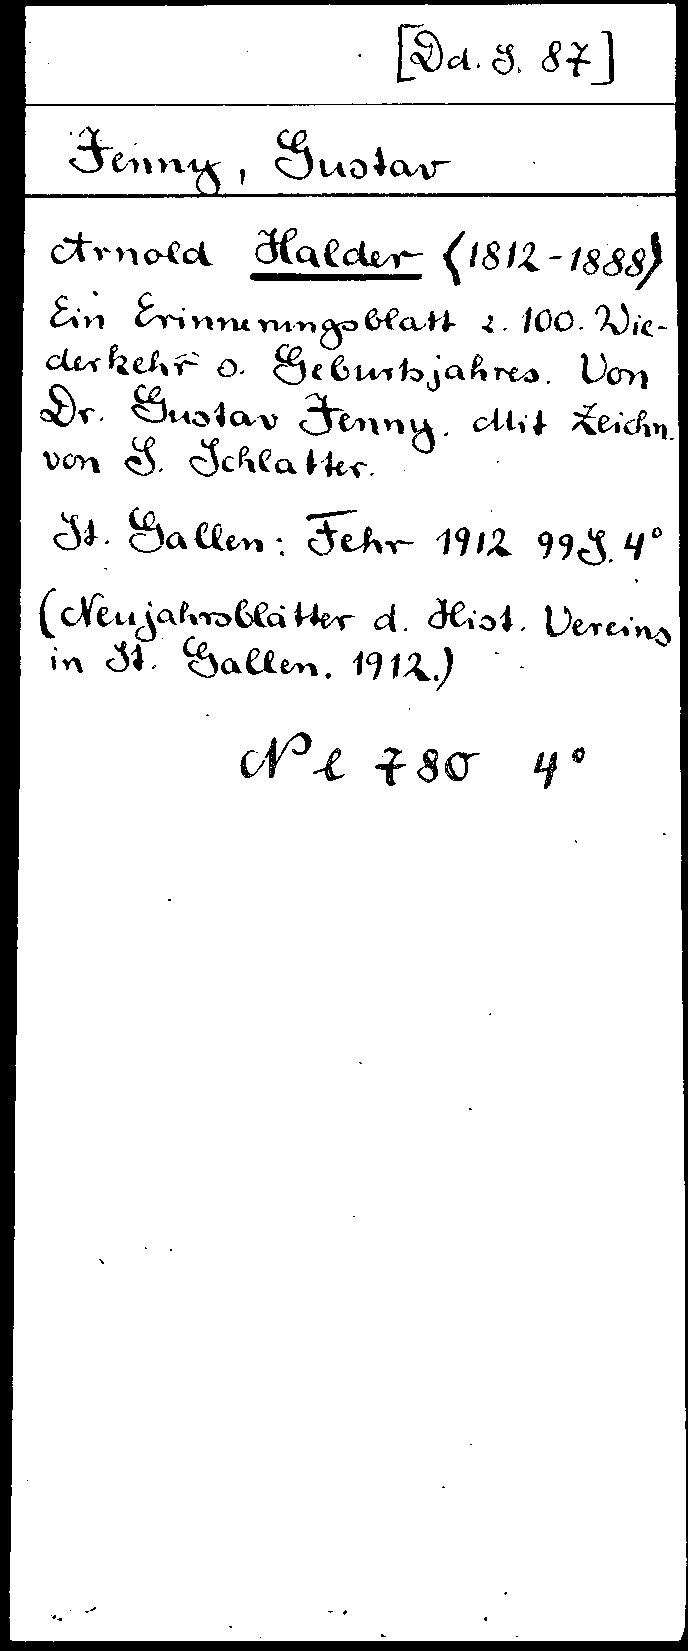 [Dd. S. 87]
Jenny, Gustav
Arnold Halder (1812-1888)
Ein Erinnerungsblatt z. 100. Wie-
derkehr s. Geburtsjahres. Von
Dr. Gustav Jenny. Mit Zeichn.
von S. Schlatter.
St. Gallen: Fehr 1912 99 S. 4°
(Neujahrsblätter d. Hist. Vereins
in St. Gallen. 1912.)
N l 780 4°